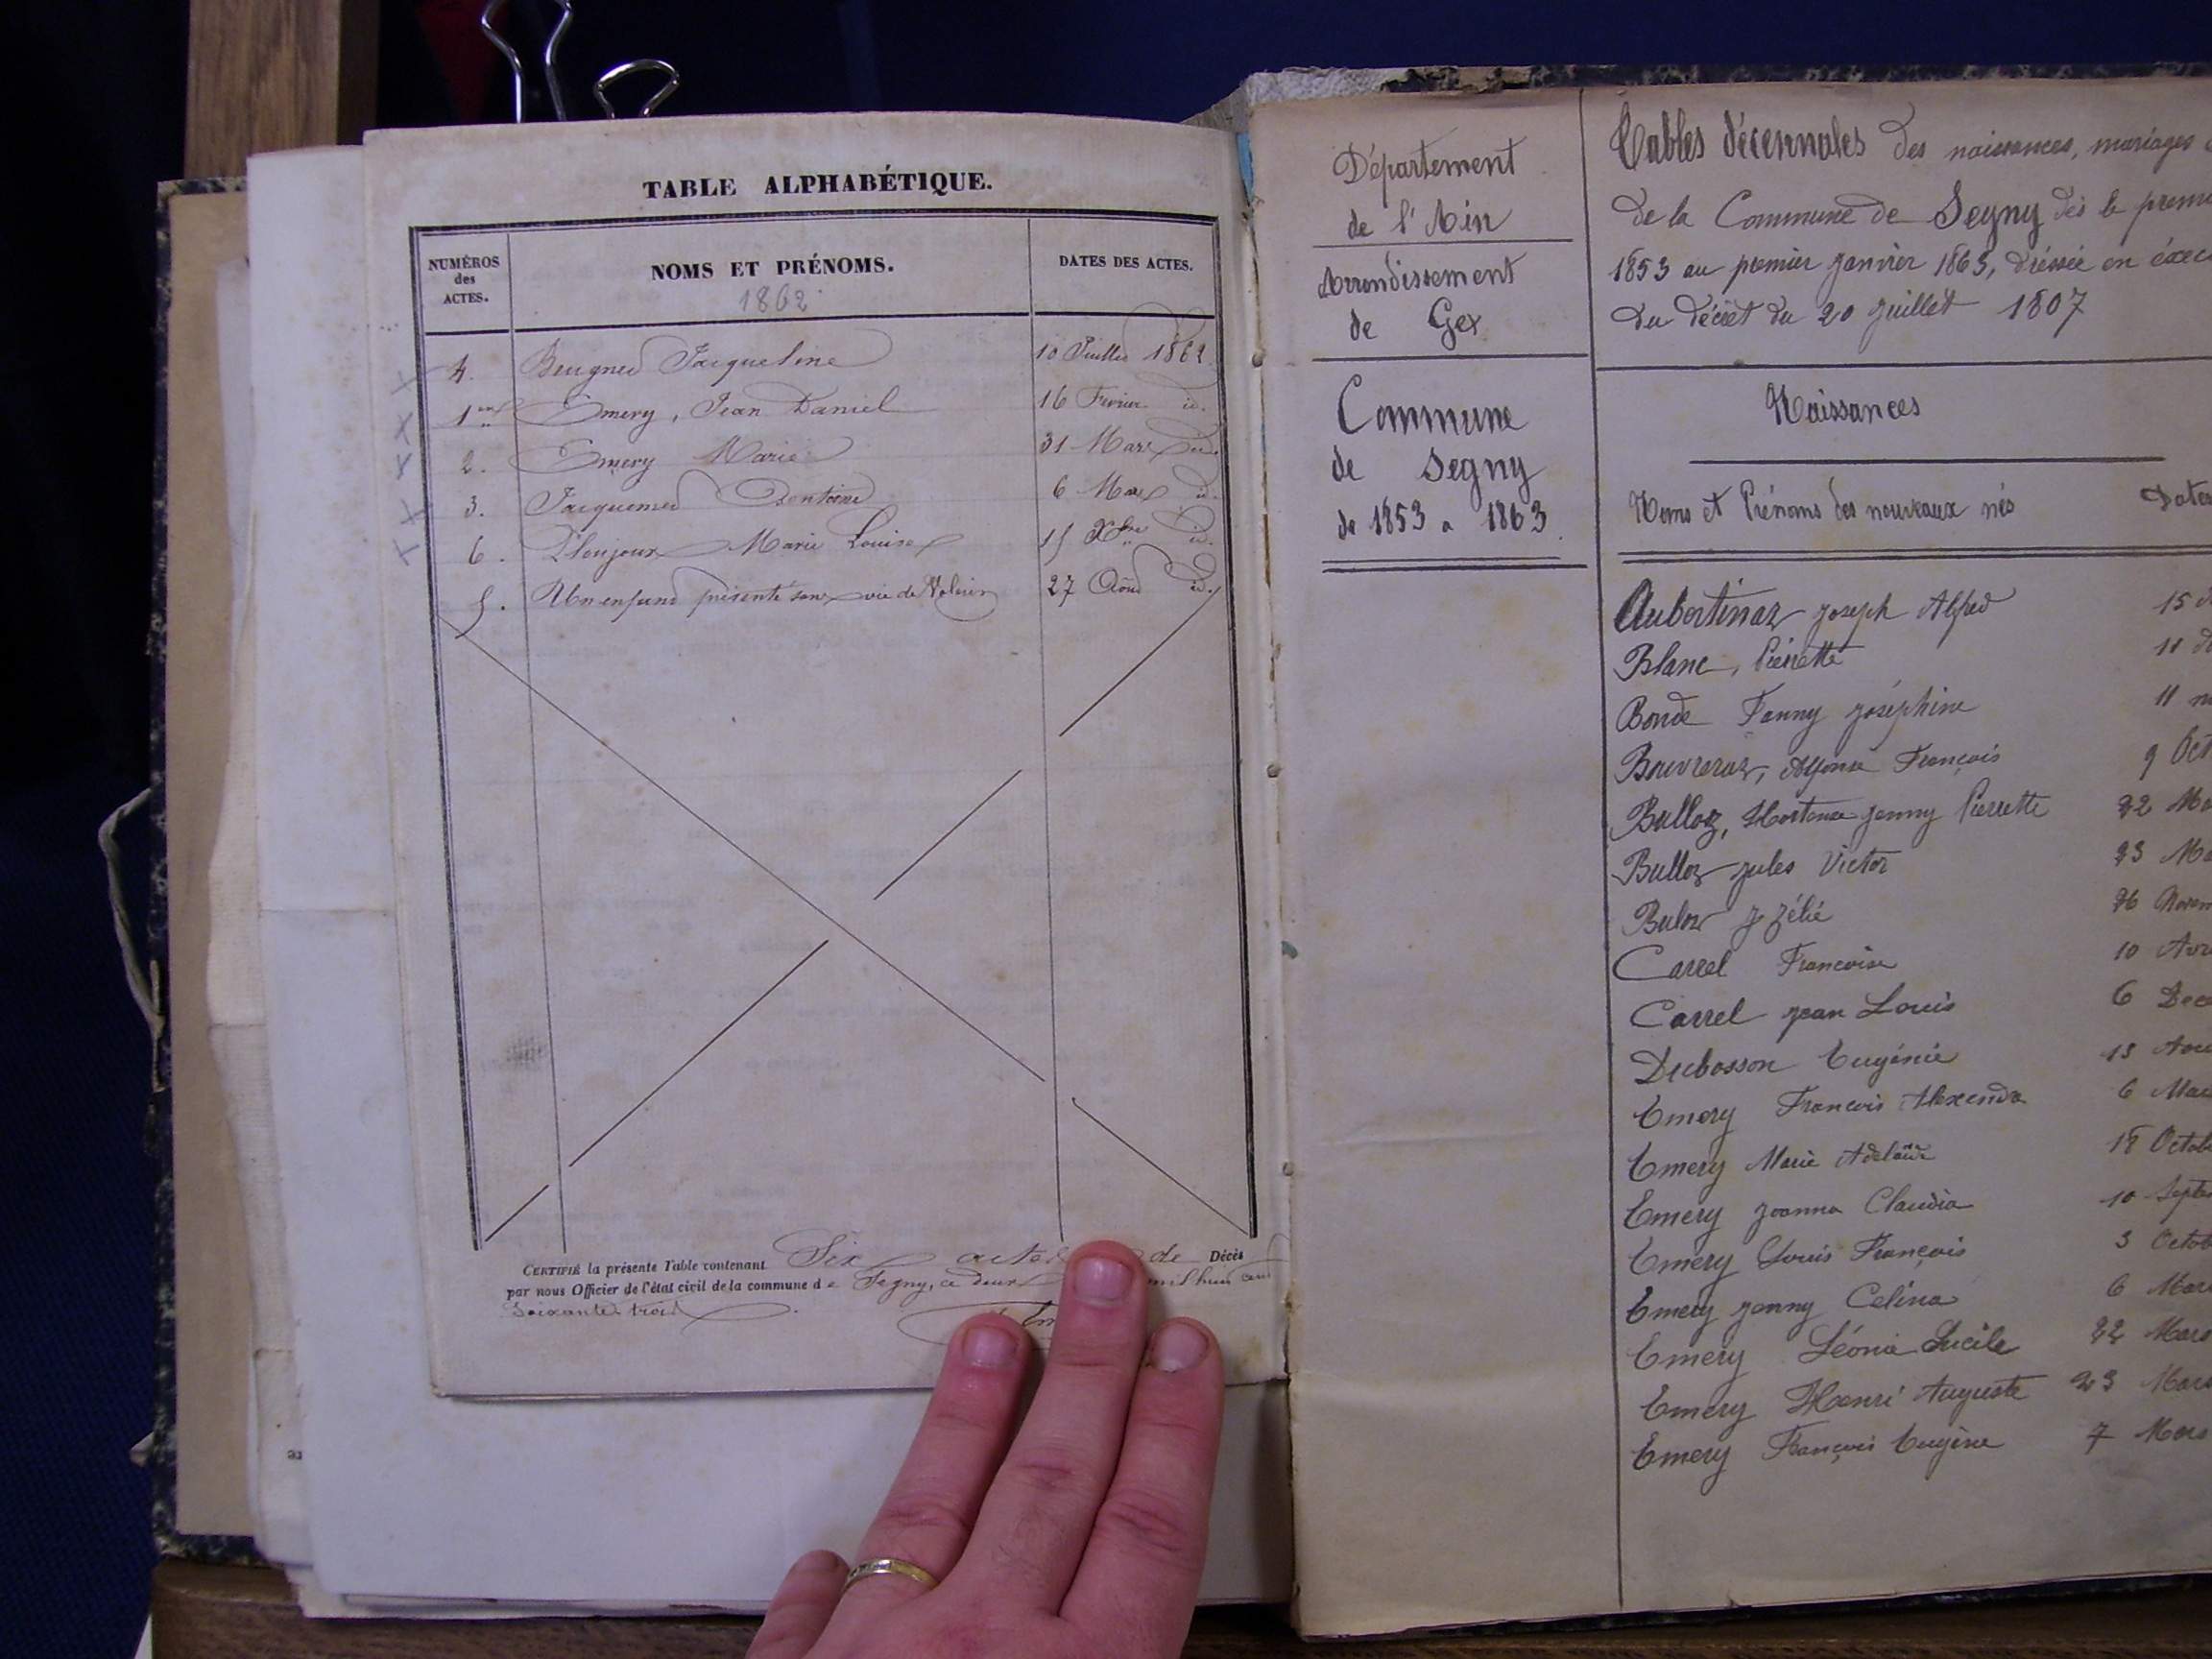 TABLE ALPHABÉTIQUE.
NUMÉROS
des
ACTES.
NOMS ET PRÉNOMS.
1862
DATES DES ACTES.
4. Jacqueline 10 Juillet 1862
1er Emery, Jean Daniel 16 Fevrier id.
2. Emery Marie 31 Mars id.
3. Jacquemet 6 id.
6. Marie Louise 15 Xbre id.
5. Un enfant présenté sans vie de 27 Août id.
CERTIFIÉ la présente Table contenant Six actes de Décès
par nous Officier de l'état civil de la commune de Segny, ce deux mil huit cent
Soixante trois
Département
de l'Ain
Arrondissement
de Gex
Commune
de Segny
de 1853 a 1863.
Tables décennales des naissances, mariages
de la Commune de Segny dès le
1853 au premier janvier 1863, dréssée en
du décret du 20 juillet 1807
Naissances
Noms et Prénoms des nouveaux nés
Aubertinaz joseph Alfred 15
Blanc, Pierrette 11
Bonde Fanny joséphine 11
François 9 Oct
Bulloz, Hortense jenny Pierrette 22
Bulloz jules Victor 23
26
Carrel Francoise 10
Carrel jean Louis 6
Dubosson Eugénie 13
Emery Francois Alexendre 6
Emery Marie Adelaïde 18
Emery joanna Claudia 10
Emery Louis François 3
Emery jenny Celina 6
Emery Léonie Lucile 22 Mars
Emery Henri Auguste 23 Mars
Emery François Eugène 7 Mars